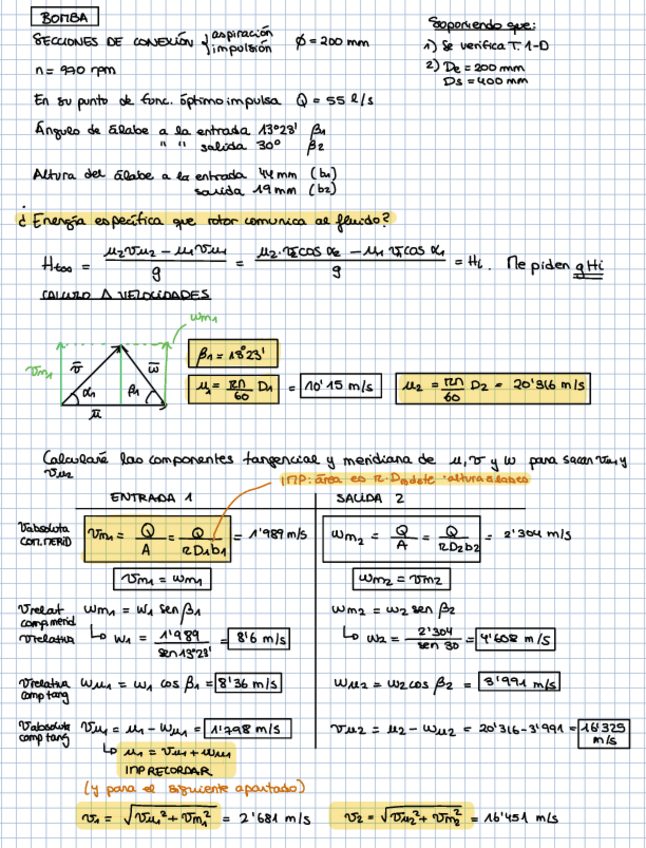 BOMBA
SECCIONES DE CONEXIÓN { aspiración impulsión Φ = 200 mm
Suponiendo que:
1) Se verifica T. 1-D
2) De = 200 mm
Ds = 400 mm
n = 970 rpm
En su punto de func. óptimo impulsa Q = 55 l/s
Ángulo de álabe a la entrada 13°23' β1
" " salida 30° β2
Altura del álabe a la entrada 44 mm (b1)
salida 19 mm (b2)
¿Energía específica que rotor comunica al fluido?
Ht∞ = (u2 vu2 - u1 vu1) / g = (u2 · v2 cos α2 - u1 v1 cos α1) / g = Hi. Me piden gHi
CALCULO Δ VELOCIDADES
wm1
vm1 v α1 β1 w u
β1 = 13°23'
u1 = πn/60 D1 = 10'15 m/s
u2 = πn/60 D2 = 20'316 m/s
Calcularé las componentes tangencial y meridiana de u, v y w para sacar vu1 y
vu2
IMP: área es π·D
ENTRADA 1
SALIDA 2
Vabsoluta
com. MERID
vm1 = Q/A = Q/πD1b1 = 1'989 m/s
wm2 = Q/A = Q/πD2b2 = 2'304 m/s
vm1 = wm1
wm2 = vm2
Vrelat
comp merid
wm1 = w1 sen β1
wm2 = w2 sen β2
Vrelativa
↳ w1 = 1'989 / sen 13°23' = 8'6 m/s
↳ w2 = 2'304 / sen 30 = 4'608 m/s
Vrelativa
comp tang
wu1 = w1 cos β1 = 8'36 m/s
wu2 = w2 cos β2 = 3'991 m/s
Vabsoluta
comp tang
vu1 = u1 - wu1 = 1'798 m/s
vu2 = u2 - wu2 = 20'316 - 3'991 = 16'325 m/s
↳ u1 = vu1 + wu1
IMP RECORDAR
(y para el siguiente apartado)
v1 = √(vu1² + vm1²) = 2'681 m/s
v2 = √(vu2² + vm2²) = 16'451 m/s